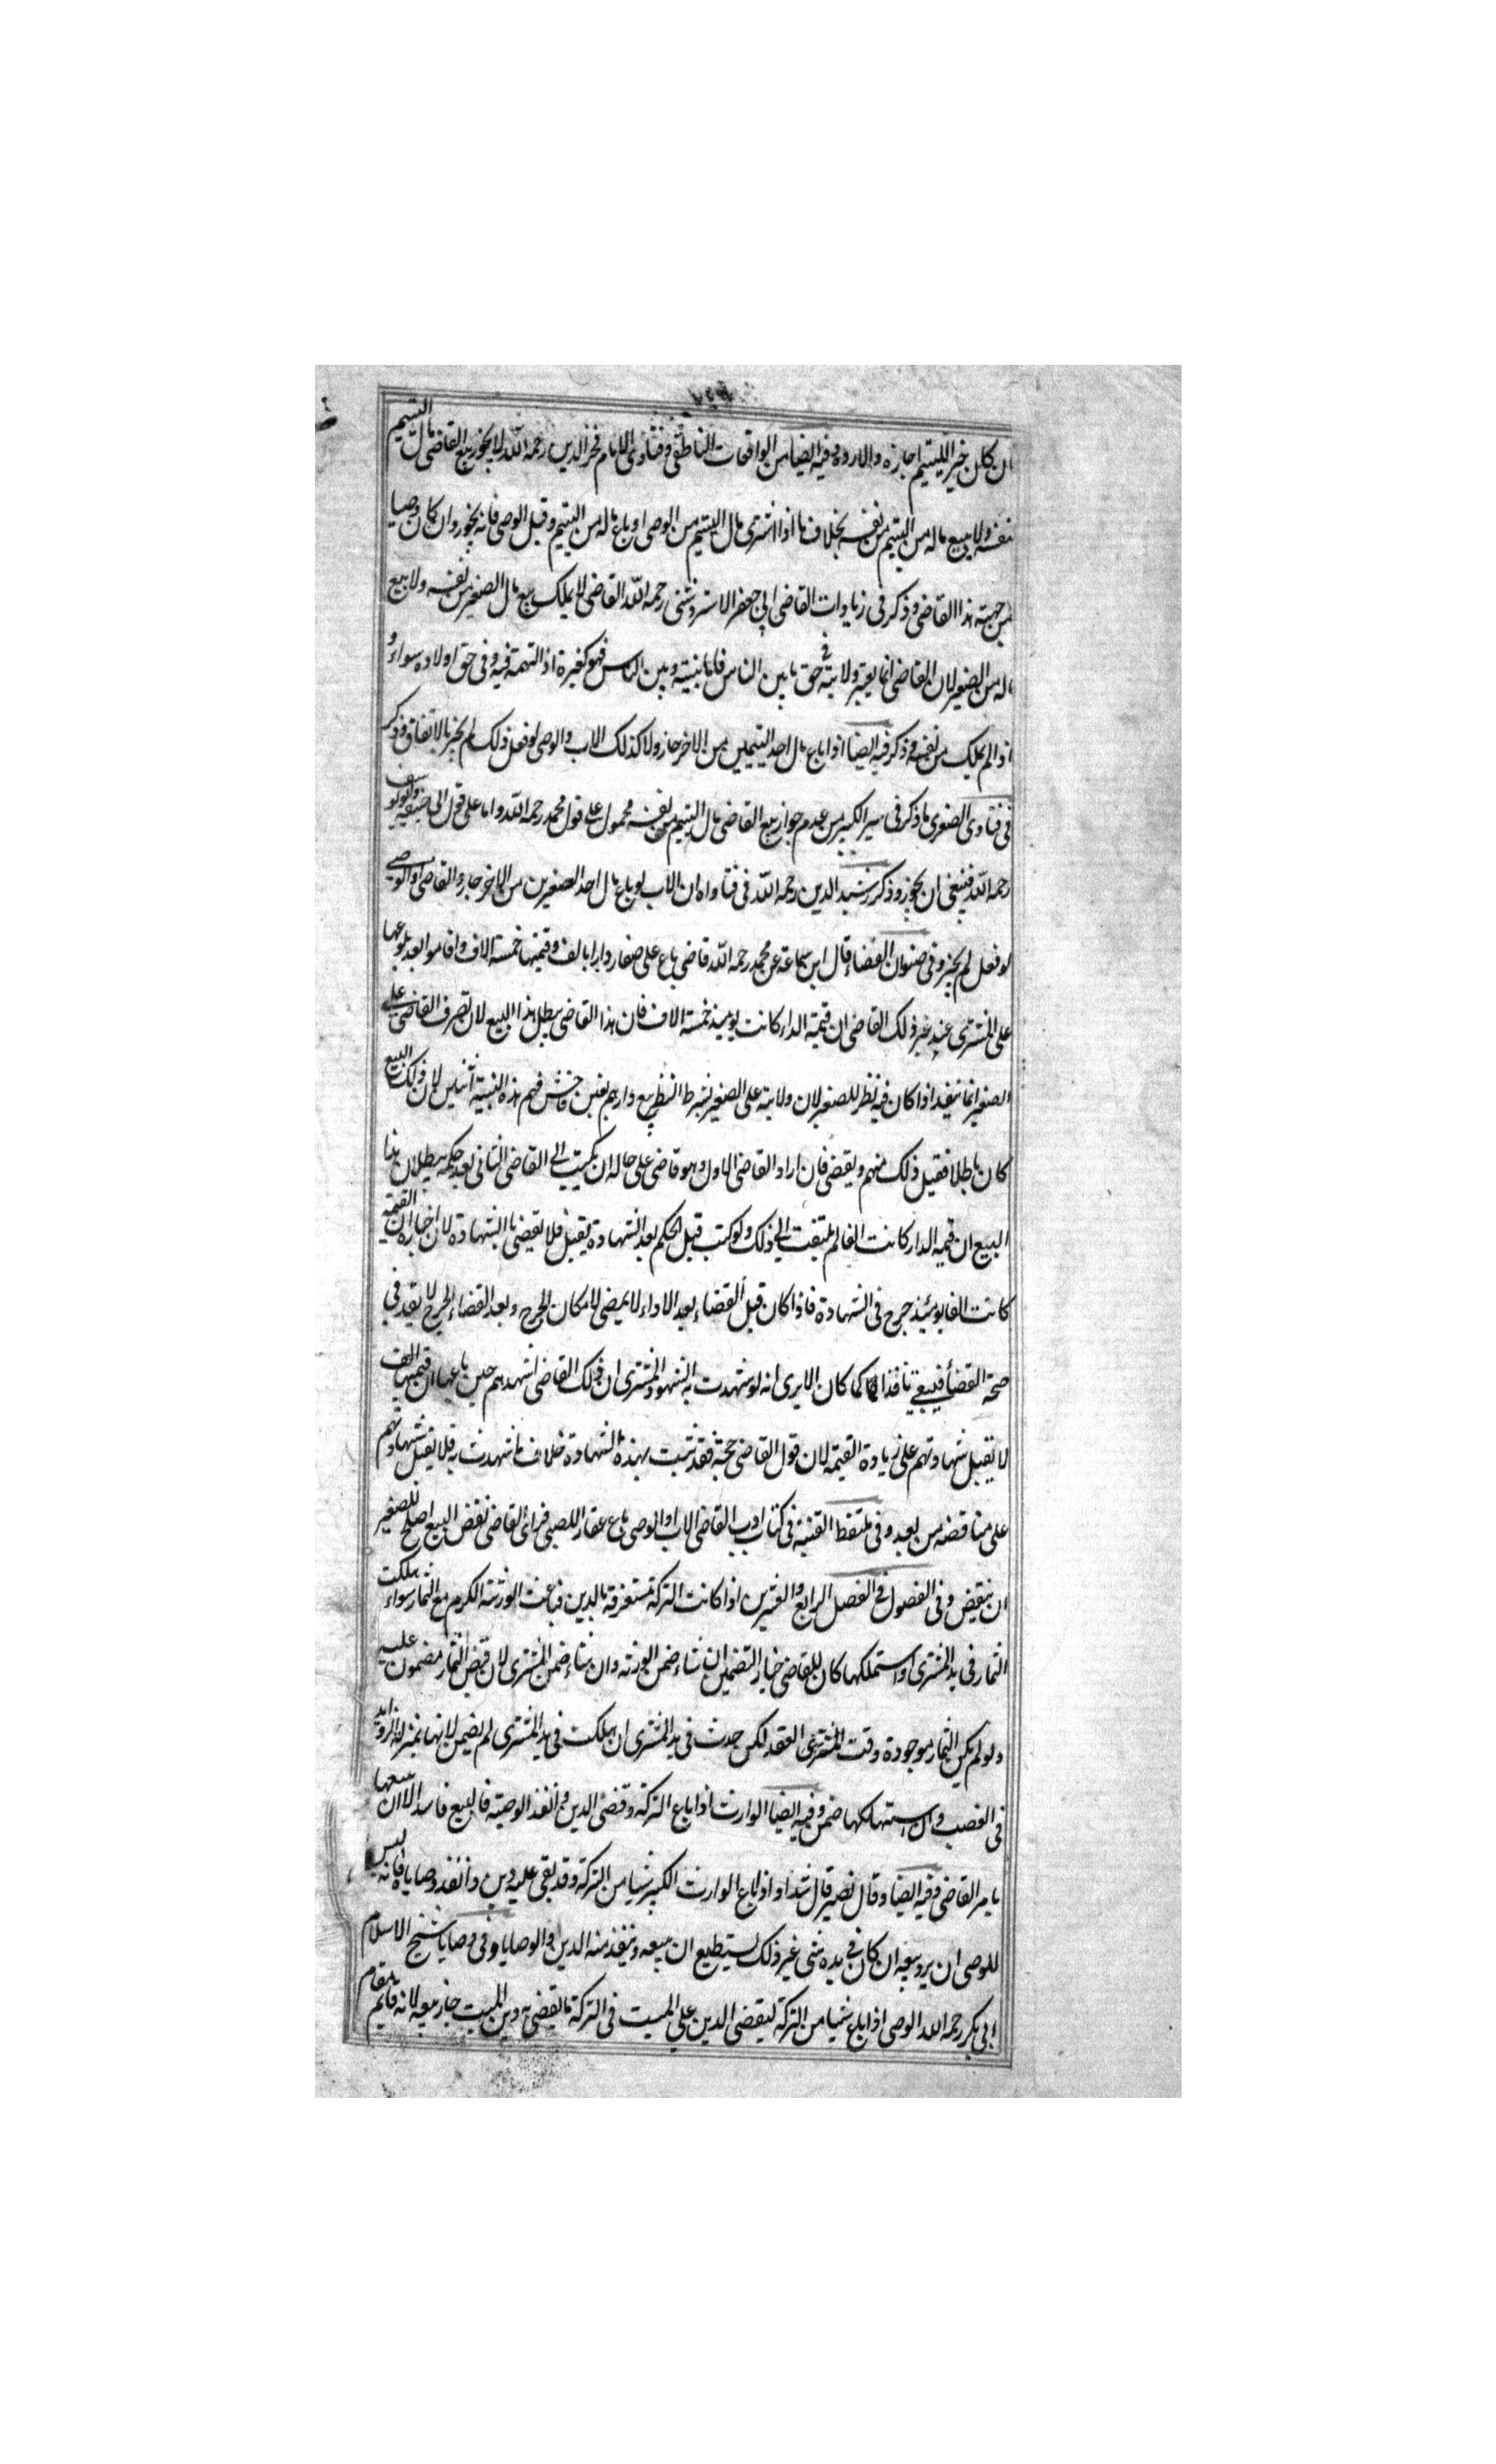 ان كان خير اللتيم اجازه والا رده وفيه ايضا من الواقعات الناطفى وفتاوى الامام فخر الدين رحمه الله لا يجوز بيع القاضى مال اليتيم
نفسه ولا بيع ماله من اليتيم من نفسه بخلاف ما اذا اشترى مال اليتيم من الوصى او باع ماله من اليتيم وقبل الوصى فانه يجوز وان كان وصيا
من جهة هذا القاضى وذكر فى زيادات القاضى ابى جعفر الاستروشنى رحمه الله القاضى لا يملك بيع مال الصغير من نفسه ولا بيع
ماله من الصغير لان القاضى انما يعتبر ولايته فى حق ما بين الناس فاما بينه وبين الناس فهو كغيره اذ التهمة فيه وفى حق اولاده سواء و
اذا لم يملك من نفسه وذكر فيه ايضا اذا باع مال احد اليتيمين من الاخر جاز ولا كذلك الاب والوصى لو فعل ذلك لم يجز بالاتفاق وذكر
فى فتاوى الصغرى ما ذكر فى سير الكبير من عدم جواز بيع القاضى مال اليتيم من نفسه محمول على قول محمد رحمه الله واما على قول ابى حنيفه وابو يوسف
رحمه الله فينبغى ان يجوز وذكر رشيد الدين رحمه الله فى فتاواه ان الاب لو باع مال احد الصغيرين من الاخر جاز والقاضى او الوصى
لو فعل لم يجز وفى صنوان القضاء قال ابن سماعة عن محمد رحمه الله قاضى باع على صغار دارا بالف وقيمتها خمسة الاف واقاموا بعد بلوغها
على المشترى عند غير ذلك القاضى ان قيمة الدار كانت يومئذ خمسة الاف فان هذا القاضى يبطل هذا البيع لان تصرف القاضى على
الصغير انما ينفذ اذا كان فيه نظر للصغير لان ولايته على الصغير بشرط النظر بيع دارهم بغبن فاحش فهم هذه البينة اثبتين لان ذلك البيع
كان باطلا فقبل ذلك منهم ويقضى فان اراد القاضى الاول وهو قاضى على حاله ان يكتب الى القاضى الثانى بعد حكمه ببطلان هذا
البيع ان قيمة الدار كانت الفا لم يلتفت الى ذلك ولو كتب قبل الحكم بعد الشهادة يقبل فلا يقضى بالشهادة لان اخباره ان القيمة
كانت الفا يومئذ جرح فى الشهادة فاذا كان قبل القضاء بعد الاداء لا يمضى لامكان الجرح وبعد القضاء الجرح لا يقدح فى
صحة القضاء فيبقى نافذا كما كان الا يرى انه لو شهدت به الشهود المشترى ان ذلك القاضى اشهدهم حين باعها ان قيمتها الف
لا يقبل شهادتهم على زيادة القيمة لان قول القاضى حجة فقد ثبت بهذه الشهادة خلاف ما شهدت به فلا يقبل شهادتهم
على مناقضه من بعد وفى ملتقط القنية فى كتاب ادب القاضى الاب او الوصى باع عقار اللصبى فراى القاضى نقض البيع اصلح للصغير
ان ينقض وفى الفصول فى الفصل الرابع والعشرين اذا كانت التركة مستغرقة بالدين فباعت الورثة الكرم مع الثمار سواء هلكت
الثمار فى يد المشترى او استملكها كان للقاضى خيار التضمين ان شاء ضمن الورثه وان شاء ضمن المشترى لان قبض الثمار مضمون عليه
ولو لم يكن الثمار موجودة وقت العقد لكن حدث فى يد المشترى ان هلكت فى يد المشترى لم يضمن لانها بمنزلة الزوايد
فى الغصب وان استهلكها ضمن وفيه ايضا الوارث اذا باع التركة وقضى الدين وانفذ الوصية فالبيع فاسد الا ان بيعها
بامر القاضى وفيه ايضا وقال نصير قال شداد اذا باع الوارث الكبير شيا من التركة وقد بقى عليه دين وانفذ وصاياه فانه ليس
للوصى ان يرد بيعه ان كان فى يده شئ غير ذلك يستطيع ان يبيعه وينفذ منه الدين او الوصايا وفى وصايا شيخ الاسلام
ابى بكر رحمه الله الوصى اذا باع شيا من التركة ليقضى الدين على الميت فى التركة ما يقضى به دين الميت جاز بيعه لانه قايم مقام